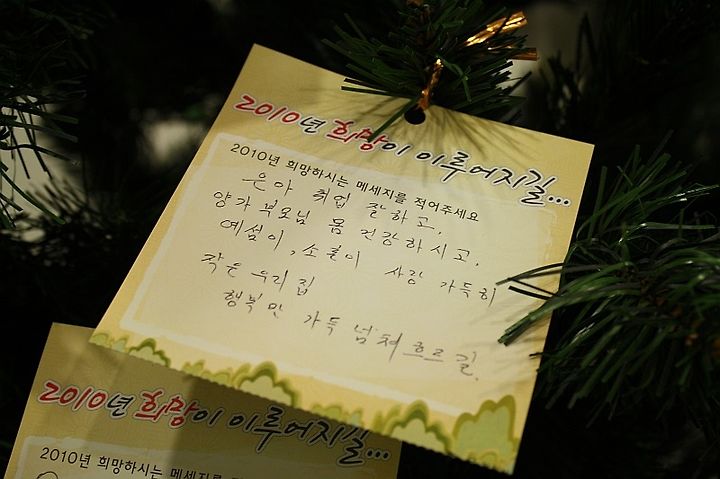 2010년 희망이 이루어지길...
2010년 희망하시는 메세지를 적어주세요
은아 취업 잘하고,
양가부모님 몸 건강하시고,
예섬이, 소른이 사랑 가득히
작은 우리집
행복만 가득 넘쳐흐르길.
2010년 희망이 이루어지길...
2010년 희망하시는 메세지를